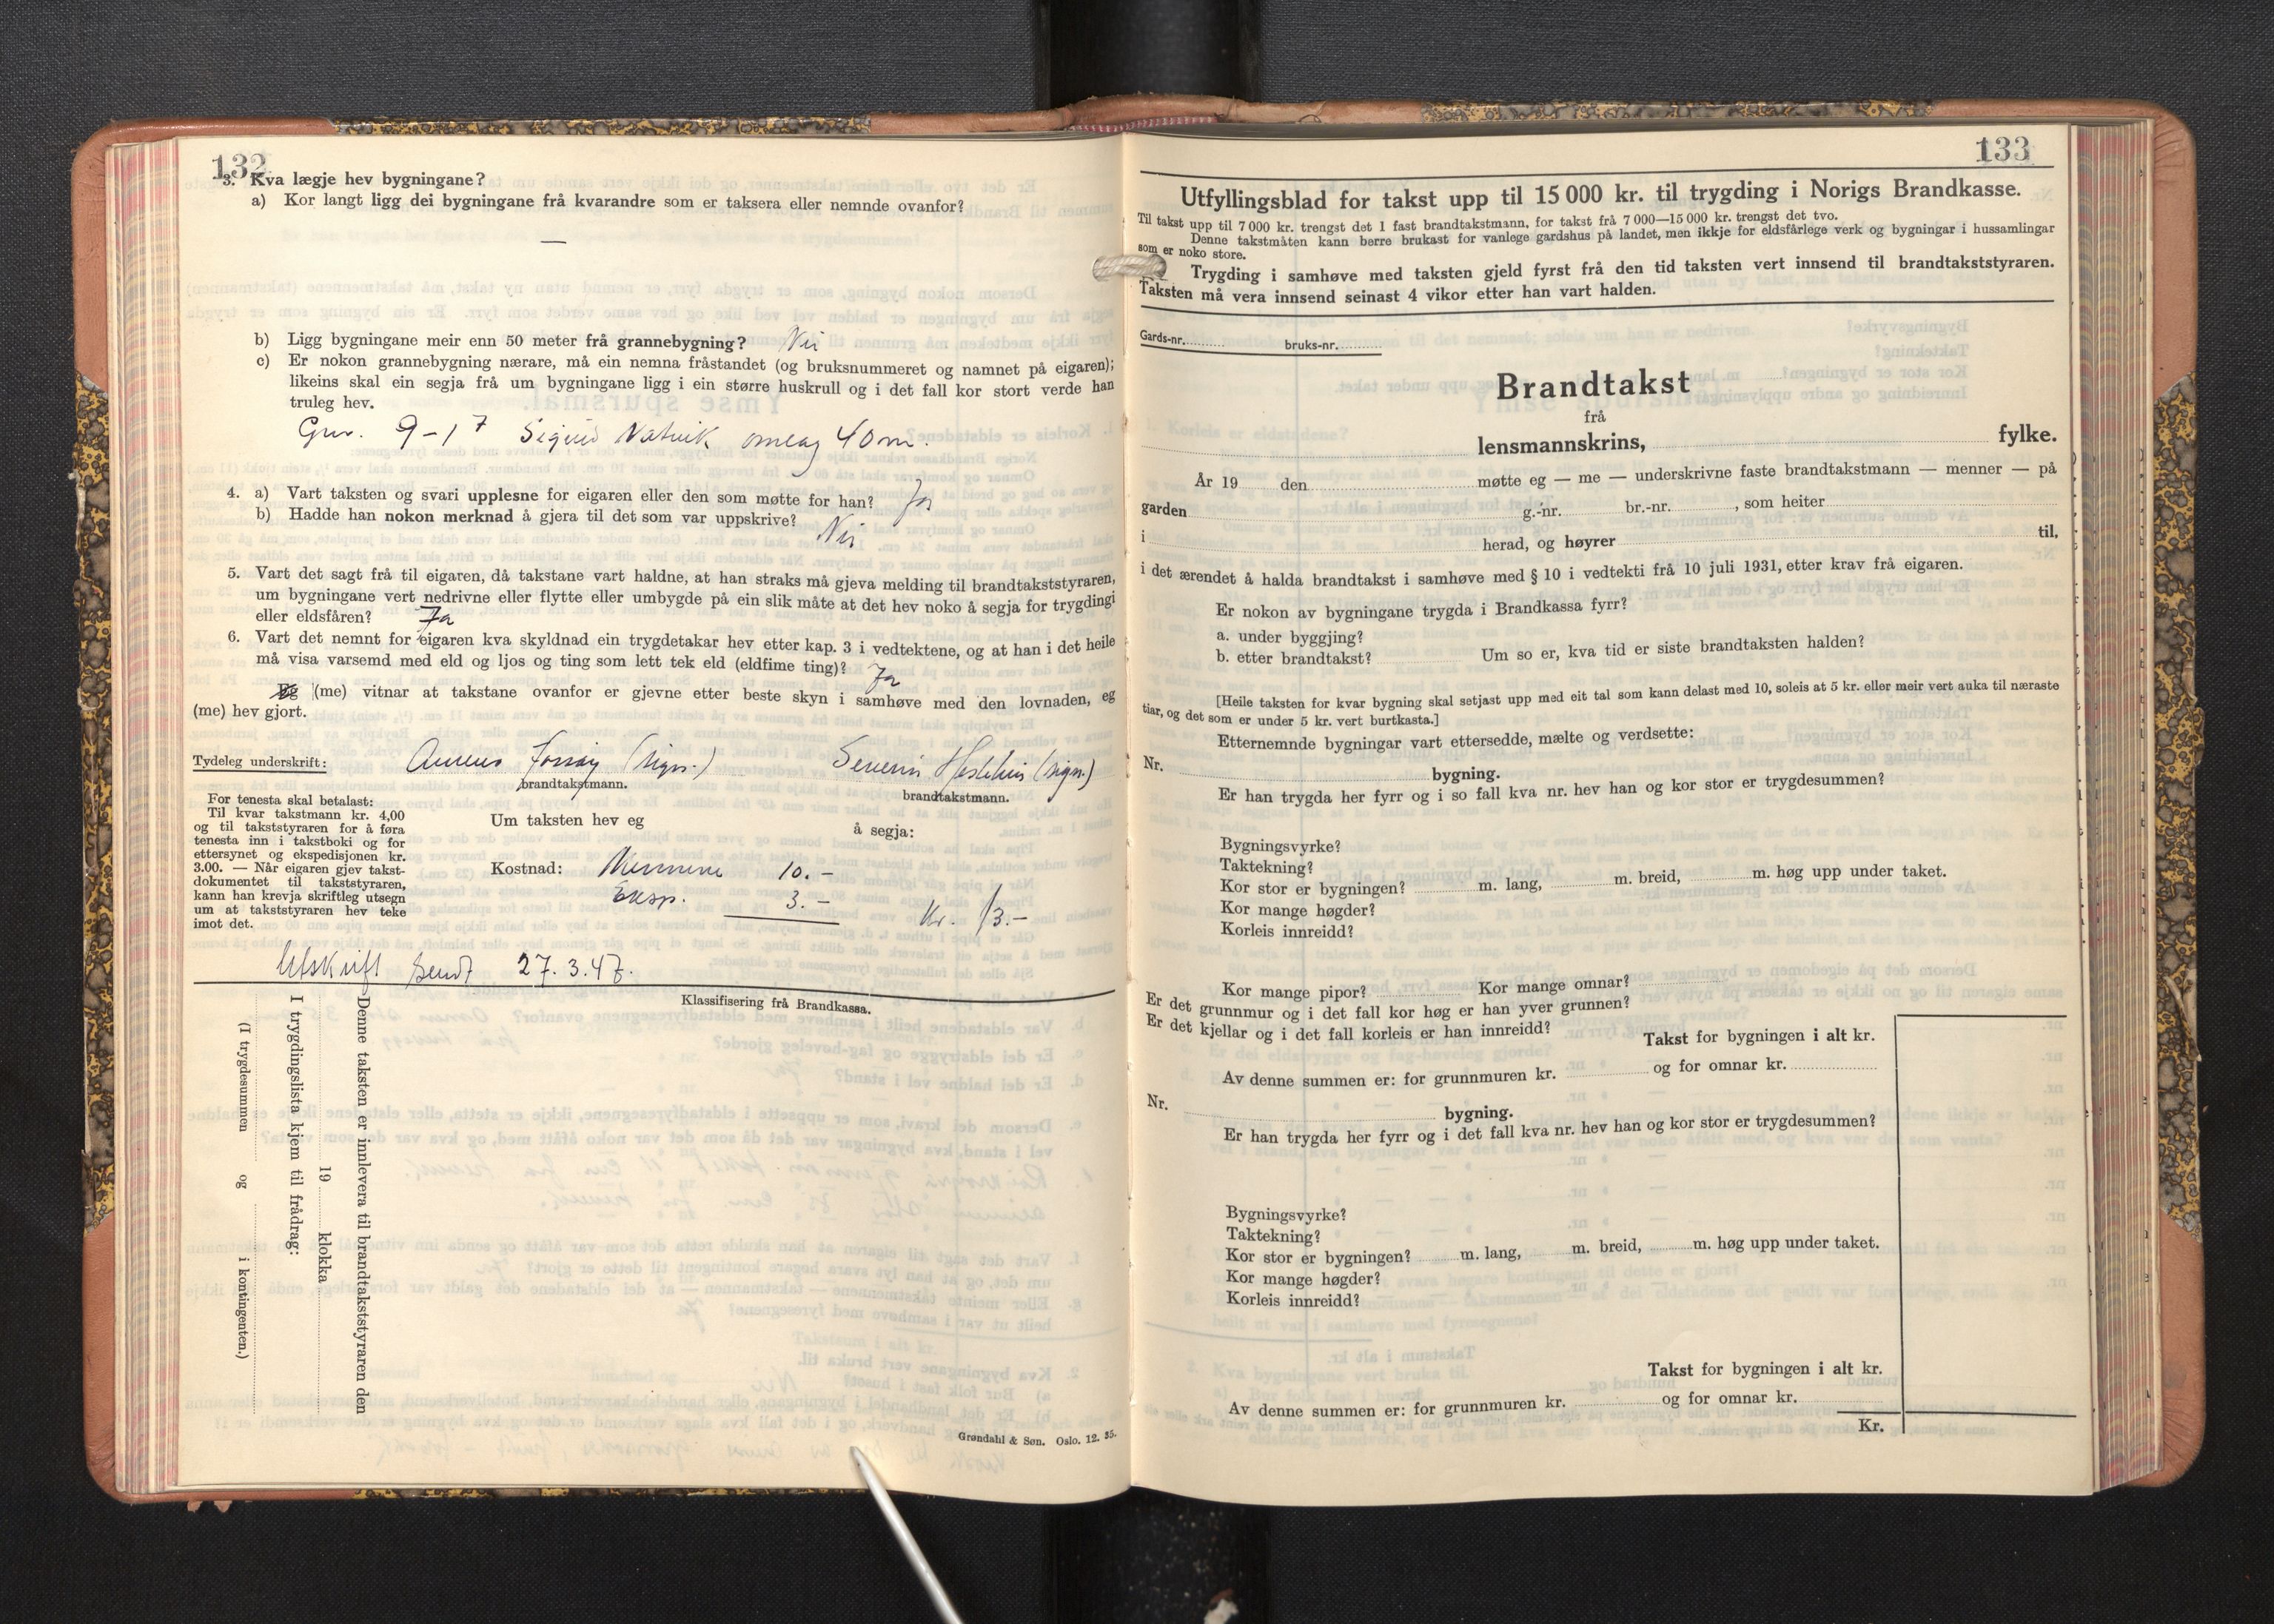 132
3. Kva lægje hev bygningane?
a) Kor langt ligg dei bygningane frå kvarandre som er taksera eller nemnde ovanfor?
—
b) Ligg bygningane meir enn 50 meter frå grannebygning? Nei
c) Er nokon grannebygning nærare, må ein nemna fråstandet (og bruksnummeret og namnet på eigaren);
likeins skal ein segja frå um bygningane ligg i ein større huskrull og i det fall kor stort verde han
truleg hev.
Gnr. 9-17 Sigurd Natvik omlag 40 m.
4. a) Vart taksten og svari upplesne for eigaren eller den som møtte for han? Ja
b) Hadde han nokon merknad å gjera til det som var uppskrive? Nei
5. Vart det sagt frå til eigaren, då takstane vart haldne, at han straks må gjeva melding til brandtakststyraren,
um bygningane vert nedrivne eller flytte eller umbygde på ein slik måte at det hev noko å segja for trygdingi
eller eldsfåren? Ja
6. Vart det nemnt for eigaren kva skyldnad ein trygdetakar hev etter kap. 3 i vedtektene, og at han i det heile
må visa varsemd med eld og ljos og ting som lett tek eld (eldfime ting)? Ja
Eg (me) vitnar at takstane ovanfor er gjevne etter beste skyn i samhøve med den lovnaden, eg
(me) hev gjort.
Tydeleg underskrift: (sign.) Severin (sign.)
brandtakstmann. brandtakstmann.
For tenesta skal betalast:
Til kvar takstmann kr. 4,00
og til takststyraren for å føra
tenesta inn i takstboki og for
ettersynet og ekspedisjonen kr.
3.00. — Når eigaren gjev takst-
dokumentet til takststyraren,
kann han krevja skriftleg utsegn
um at takststyraren hev teke
imot det.
Um taksten hev eg å segja:
Kostnad: Mennene 10.-
Eksp. 3.- Kr. 13.-
Utskrift sendt 27.3.47.
Klassifisering frå Brandkassa.
Denne taksten er innlevera til brandtakststyraren den
19 klokka
I trygdingslista kjem til frådrag:
(I trygdesummen og i kontingenten.)
Grøndahl & Søn. Oslo. 12. 35.
133
Utfyllingsblad for takst upp til 15 000 kr. til trygding i Norigs Brandkasse.
Til takst upp til 7 000 kr. trengst det 1 fast brandtakstmann, for takst frå 7 000—15 000 kr. trengst det tvo.
Denne takstmåten kann berre brukast for vanlege gardshus på landet, men ikkje for eldsfårlege verk og bygningar i hussamlingar
som er noko store.
Trygding i samhøve med taksten gjeld fyrst frå den tid taksten vert innsend til brandtakststyraren.
Taksten må vera innsend seinast 4 vikor etter han vart halden.
Gards-nr. bruks-nr.
Brandtakst
frå
lensmannskrins, fylke.
År 19 den møtte eg — me — underskrivne faste brandtakstmann — menner — på
garden g.-nr. br.-nr. , som heiter
i herad, og høyrer til,
i det ærendet å halda brandtakst i samhøve med § 10 i vedtekti frå 10 juli 1931, etter krav frå eigaren.
Er nokon av bygningane trygda i Brandkassa fyrr?
a. under byggjing?
b. etter brandtakst? Um so er, kva tid er siste brandtaksten halden?
[Heile taksten for kvar bygning skal setjast upp med eit tal som kann delast med 10, soleis at 5 kr. eller meir vert auka til næraste
tiar, og det som er under 5 kr. vert burtkasta.]
Etternemnde bygningar vart ettersedde, mælte og verdsette:
Nr. bygning.
Er han trygda her fyrr og i so fall kva nr. hev han og kor stor er trygdesummen?
Bygningsvyrke?
Taktekning?
Kor stor er bygningen? m. lang, m. breid, m. høg upp under taket.
Kor mange høgder?
Korleis innreidd?
Kor mange pipor? Kor mange omnar?
Er det grunnmur og i det fall kor høg er han yver grunnen?
Er det kjellar og i det fall korleis er han innreidd?
Takst for bygningen i alt kr.
Av denne summen er: for grunnmuren kr. og for omnar kr.
Nr. bygning.
Er han trygda her fyrr og i det fall kva nr. hev han og kor stor er trygdesummen?
Bygningsvyrke?
Taktekning?
Kor stor er bygningen? m. lang, m. breid, m. høg upp under taket.
Kor mange høgder?
Korleis innreidd?
Takst for bygningen i alt kr.
Av denne summen er: for grunnmuren kr. og for omnar kr.
Kr.